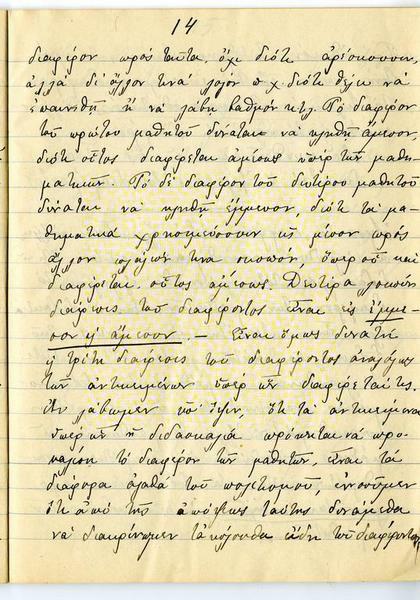 14
διαφέρον πρὸς ταῦτα, ὄχι διότι ἀρέσκουσιν,
ἀλλὰ δι' ἄλλον τινὰ λόγον π.χ. διότι θέλει νὰ
ἐπαινεθῇ ἢ νὰ λάβῃ βαθμόν κτλ. Τὸ διαφέρον
τοῦ πρώτου μαθητοῦ δύναται νὰ κληθῇ ἄμεσον,
διότι οὗτος διαφέρεται ἀμέσως ὑπὲρ τῶν μαθη-
ματικῶν. Τὸ δὲ διαφέρον τοῦ δευτέρου μαθητοῦ
δύναται νὰ κληθῇ ἔμμεσον, διότι τὰ μα-
θηματικὰ χρησιμεύουσιν ὡς μέσον πρὸς
ἄλλον τινα σκοπόν, ὑπὲρ οὗ καὶ
διαφέρεται οὗτος ἀμέσως. Δευτέρα λοιπὸν
διαίρεσις τοῦ διαφέροντος εἶναι εἰς ἔμμε-
σον ἢ ἄμεσον. — Εἶναι ὅμως δυνατὴ
ἡ τρίτη διαίρεσις τοῦ διαφέροντος ἀναλόγως
τῶν ἀντικειμένων ὑπὲρ ὧν διαφέρεταί τις.
Ἂν λάβωμεν ὑπ' ὄψιν, ὅτι τὰ ἀντικείμενα
ὑπὲρ ὧν ἡ διδασκαλία πρόκειται νὰ προ-
καλέσῃ τὸ διαφέρον τῶν μαθητῶν, εἶναι τὰ
διάφορα ἀγαθὰ τοῦ πολιτισμοῦ, ἐννοοῦμεν
ὅτι ἀπὸ τῆς ἀπόψεως ταύτης δυνάμεθα
νὰ διακρίνωμεν τὰ ἀκόλουθα εἴδη τοῦ διαφέροντος